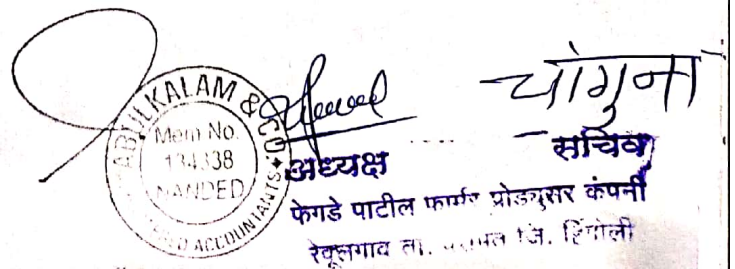 ABULKALAM & CO
Mem No.
134338
NANDED
ACCOUNTANTS
चांगुना
अध्यक्ष
सचिव
फेगडे पाटील फार्मर प्रोड्युसर कंपनी
ता. जि. हिंगोली